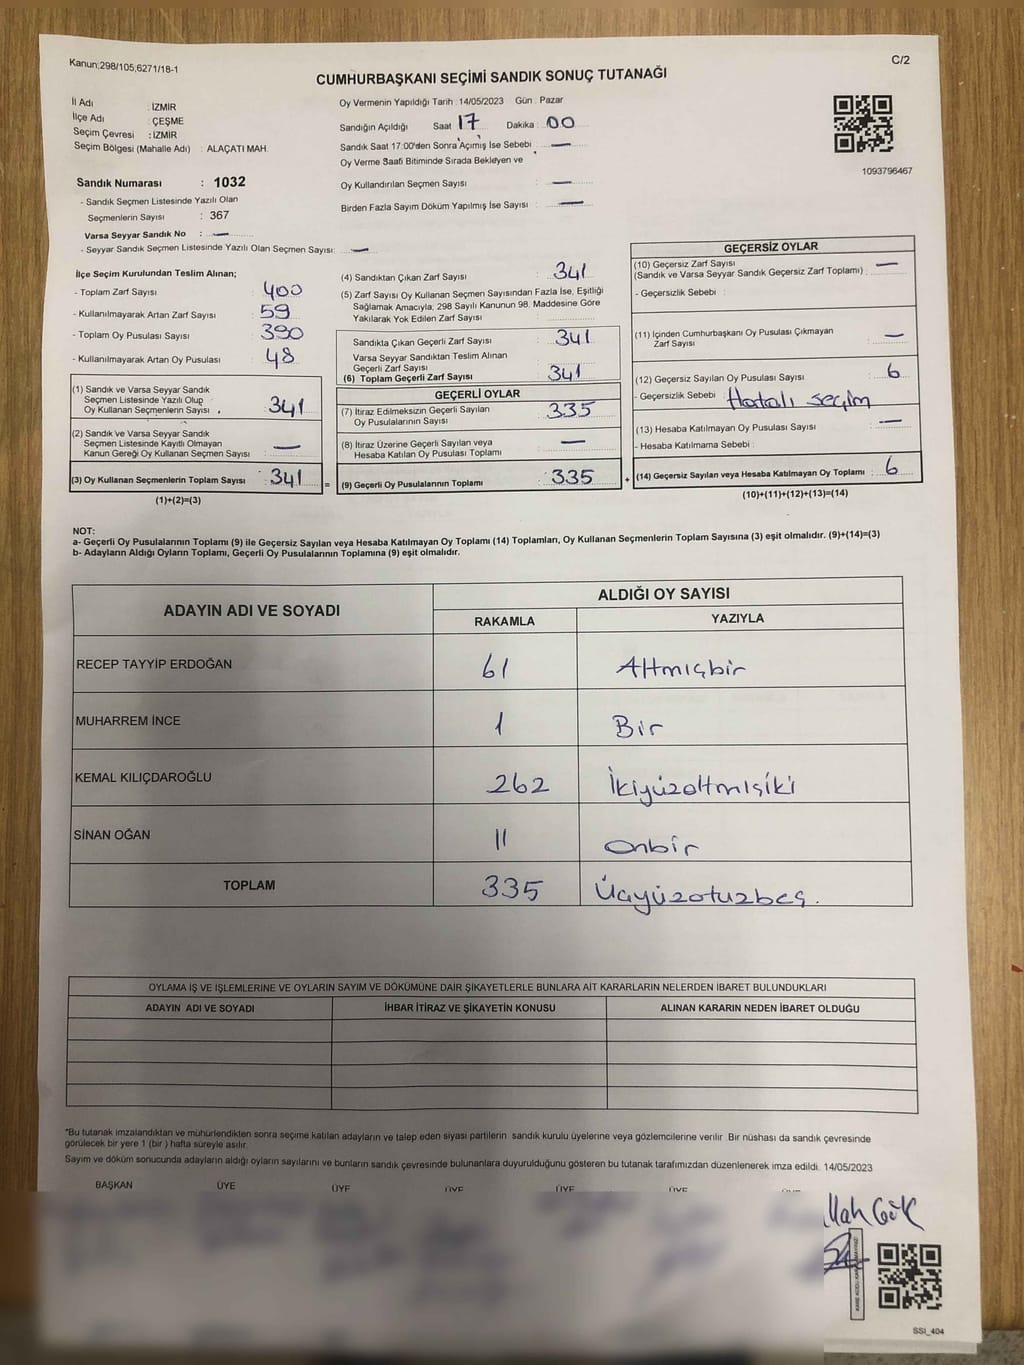 Kanun;298/105,6271/18-1
C/2
CUMHURBAŞKANI SEÇİMİ SANDIK SONUÇ TUTANAĞI
İl Adı : İZMİR
İlçe Adı : ÇEŞME
Seçim Çevresi : İZMİR
Seçim Bölgesi (Mahalle Adı) : ALAÇATI MAH.
Sandık Numarası : 1032
- Sandık Seçmen Listesinde Yazılı Olan
Seçmenlerin Sayısı : 367
Varsa Seyyar Sandık No : —
- Seyyar Sandık Seçmen Listesinde Yazılı Olan Seçmen Sayısı: —
Oy Vermenin Yapıldığı Tarih : 14/05/2023 Gün : Pazar
Sandığın Açıldığı Saat 17 Dakika : 00
Sandık Saat 17:00'den Sonra Açımış İse Sebebi : —
Oy Verme Saati Bitiminde Sırada Bekleyen ve
Oy Kullandırılan Seçmen Sayısı : —
Birden Fazla Sayım Döküm Yapılmış İse Sayısı : —
1093796467
İlçe Seçim Kurulundan Teslim Alınan;
- Toplam Zarf Sayısı : 400
- Kullanılmayarak Artan Zarf Sayısı : 59
- Toplam Oy Pusulası Sayısı : 390
- Kullanılmayarak Artan Oy Pusulası : 48
(1) Sandık ve Varsa Seyyar Sandık
Seçmen Listesinde Yazılı Olup
Oy Kullanan Seçmenlerin Sayısı : 341
(2) Sandık ve Varsa Seyyar Sandık
Seçmen Listesinde Kayıtlı Olmayan
Kanun Gereği Oy Kullanan Seçmen Sayısı : —
(3) Oy Kullanan Seçmenlerin Toplam Sayısı : 341
(1)+(2)=(3)
=
(4) Sandıktan Çıkan Zarf Sayısı : 341
(5) Zarf Sayısı Oy Kullanan Seçmen Sayısından Fazla İse, Eşitliği
Sağlamak Amacıyla, 298 Sayılı Kanunun 98. Maddesine Göre
Yakılarak Yok Edilen Zarf Sayısı :
Sandıkta Çıkan Geçerli Zarf Sayısı : 341
Varsa Seyyar Sandıktan Teslim Alınan
Geçerli Zarf Sayısı :
(6) Toplam Geçerli Zarf Sayısı : 341
GEÇERLİ OYLAR
(7) İtiraz Edilmeksizin Geçerli Sayılan
Oy Pusulalarının Sayısı : 335
(8) İtiraz Üzerine Geçerli Sayılan veya
Hesaba Katılan Oy Pusulası Toplamı : —
(9) Geçerli Oy Pusulalarının Toplamı : 335
+
GEÇERSİZ OYLAR
(10) Geçersiz Zarf Sayısı : —
(Sandık ve Varsa Seyyar Sandık Geçersiz Zarf Toplamı)
- Geçersizlik Sebebi :
(11) İçinden Cumhurbaşkanı Oy Pusulası Çıkmayan
Zarf Sayısı : —
(12) Geçersiz Sayılan Oy Pusulası Sayısı : 6
- Geçersizlik Sebebi : Hatalı seçim
(13) Hesaba Katılmayan Oy Pusulası Sayısı : —
- Hesaba Katılmama Sebebi :
(14) Geçersiz Sayılan veya Hesaba Katılmayan Oy Toplamı : 6
(10)+(11)+(12)+(13)=(14)
NOT:
a- Geçerli Oy Pusulalarının Toplamı (9) ile Geçersiz Sayılan veya Hesaba Katılmayan Oy Toplamı (14) Toplamları, Oy Kullanan Seçmenlerin Toplam Sayısına (3) eşit olmalıdır. (9)+(14)=(3)
b- Adayların Aldığı Oyların Toplamı, Geçerli Oy Pusulalarının Toplamına (9) eşit olmalıdır.
ADAYIN ADI VE SOYADI
ALDIĞI OY SAYISI
RAKAMLA YAZIYLA
RECEP TAYYİP ERDOĞAN 61 Altmışbir
MUHARREM İNCE 1 Bir
KEMAL KILIÇDAROĞLU 262 İkiyüzaltmışiki
SİNAN OĞAN 11 Onbir
TOPLAM 335 Üçyüzotuzbeş.
OYLAMA İŞ VE İŞLEMLERİNE VE OYLARIN SAYIM VE DÖKÜMÜNE DAİR ŞİKAYETLERLE BUNLARA AİT KARARLARIN NELERDEN İBARET BULUNDUKLARI
ADAYIN ADI VE SOYADI İHBAR İTİRAZ VE ŞİKAYETİN KONUSU ALINAN KARARIN NEDEN İBARET OLDUĞU
*Bu tutanak imzalandıktan ve mühürlendikten sonra seçime katılan adayların ve talep eden siyasi partilerin sandık kurulu üyelerine veya gözlemcilerine verilir. Bir nüshası da sandık çevresinde
görülecek bir yere 1 (bir ) hafta süreyle asılır.
Sayım ve döküm sonucunda adayların aldığı oyların sayılarını ve bunların sandık çevresinde bulunanlara duyurulduğunu gösteren bu tutanak tarafımızdan düzenlenerek imza edildi. 14/05/2023
BAŞKAN ÜYE ÜYE ÜYE ÜYE ÜYE
llah Gök
SSI_404